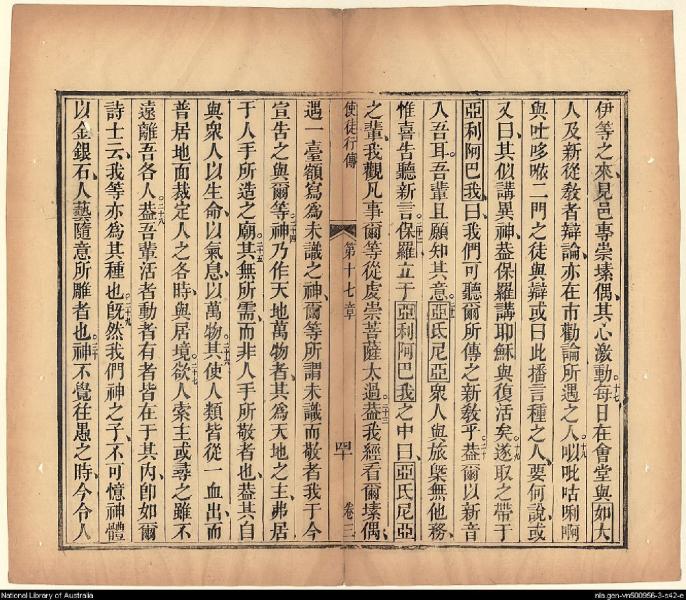 伊等之來見邑專崇塐偶其心激動十七每日在會堂與如大
人及新從敎者辯論亦在市勸論所遇之人十八以吡咕唎啊
與吐哆嗽二門之徒與辯或曰此播言種之人要何說或
又曰其似講異神葢保羅講耶穌與復活矣十九遂取之帶于
亞利阿巴我曰我們可聽爾所傳之新敎乎二十葢爾以新音
入吾耳吾輩且願知其意二十一亞氏尼亞衆人與旅槩無他務
惟喜告聽新言二十二保羅立于亞利阿巴我之中曰亞氏尼亞
之輩我觀凡事爾等從處崇菩薩太過二十三葢我經看爾塐偶
使徒行傳 第十七章 四十 卷二
遇一臺額寫爲未識之神爾等所謂未識而敬者我于今
宣告之與爾等二十四神乃作天地萬物者其爲天地之主弗居
于人手所造之廟二十五其無所需而非人手所敬者也葢其自
與衆人以生命以氣息以萬物二十六其使人類皆從一血出而
普居地面裁定人之各時與居境二十七欲人索主或尋之雖不
遠離吾各人二十八葢吾輩活者動者有者皆在于其內卽如爾
詩士云我等亦爲其種也二十九旣然我們神之子不可憶神體
以金銀石人藝隨意所雕者也三十神不覺往愚之時今合人
National Library of Australia
nla.gen-vn500956-3-s42-e